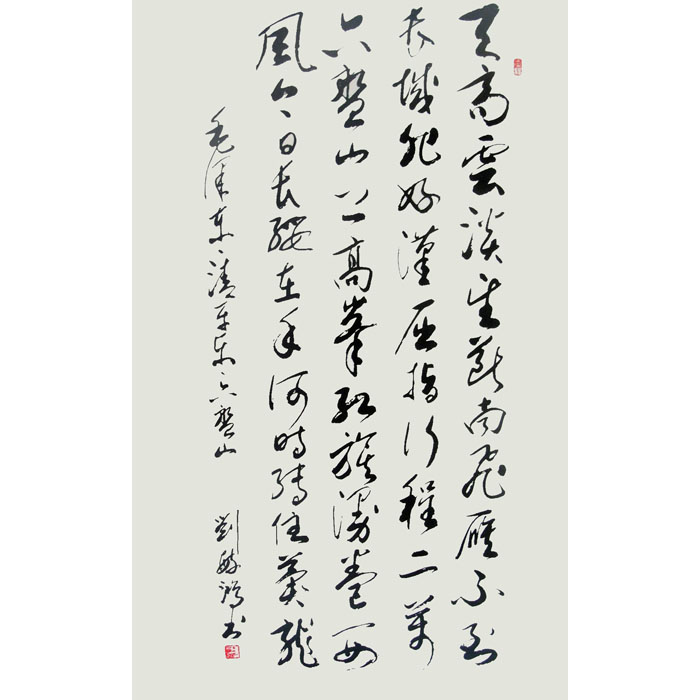 天高雲淡望断南飛雁不到
长城非好漢屈指行程二萬
六盤山上高峯红旗漫卷西
風今日长缨在手何時缚住蒼龍
毛泽东清平乐六盤山
劉书